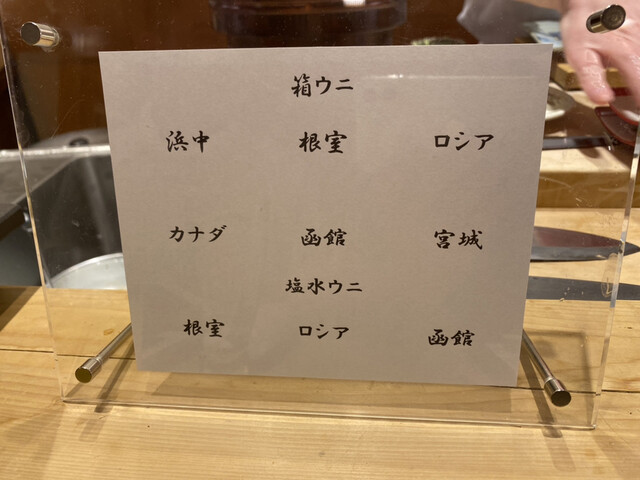 箱ウニ
浜中 根室 ロシア
カナダ 函館 宮城
塩水ウニ
根室 ロシア 函館